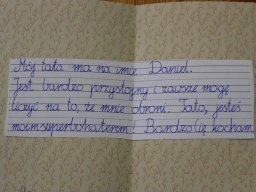 Mój tata ma na imię Daniel.
Jest bardzo przystojny i zawsze mogę
liczyć na to, że mnie obroni. Tato, jesteś
moim superbohaterem! Bardzo Cię kocham